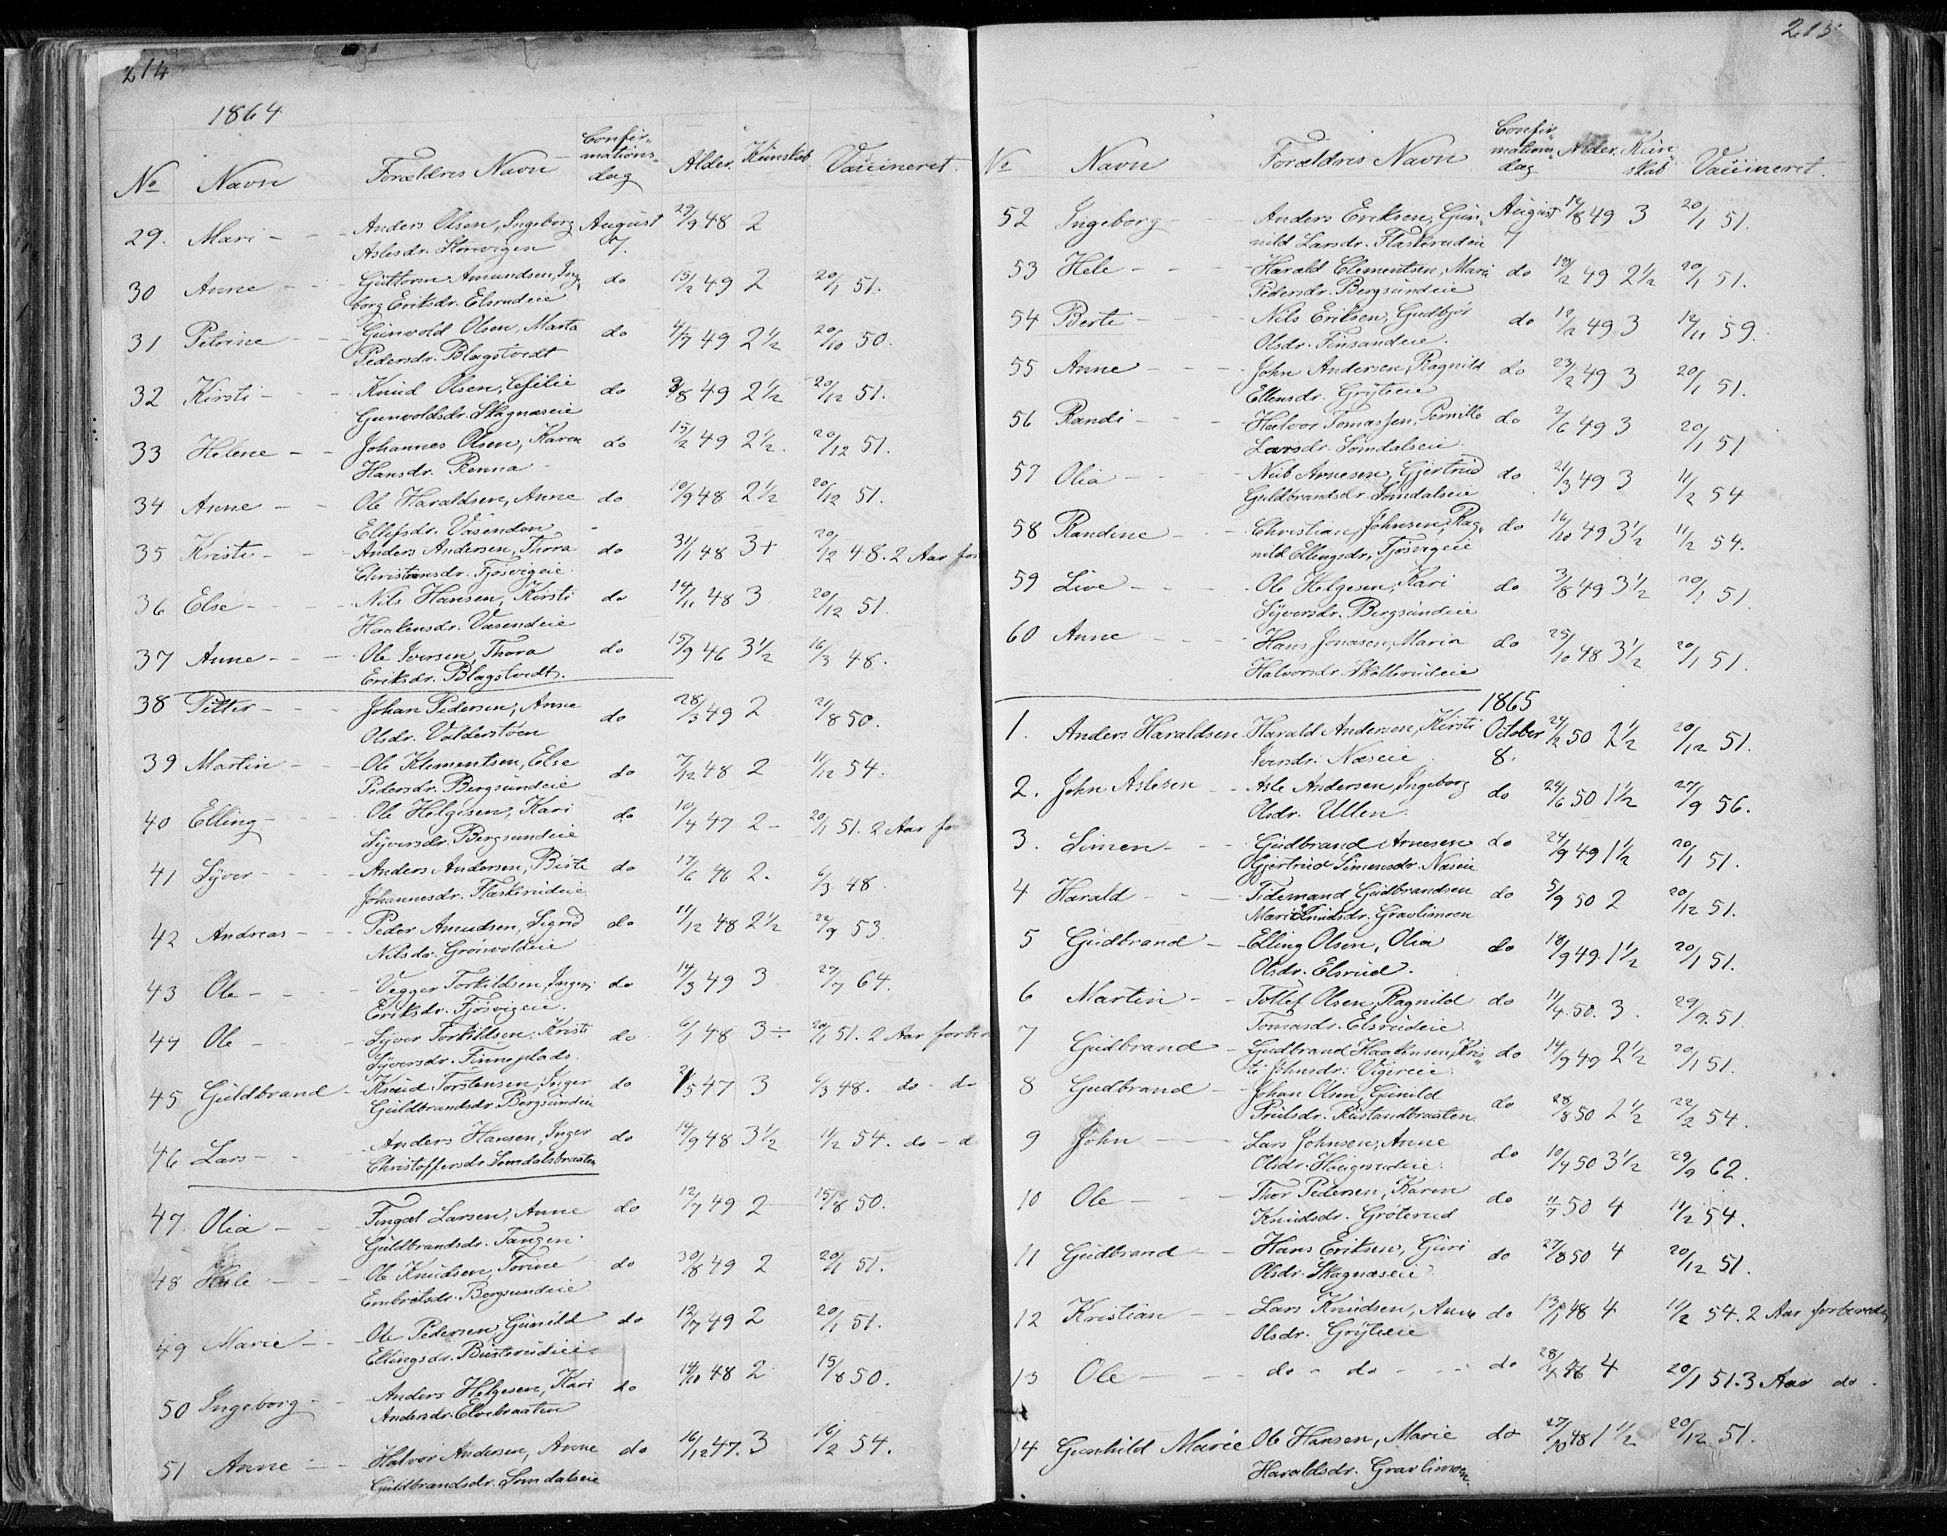 214
1864
No Navn Forældres Navn Confir-
mations-
dag Alder. Kunskab Vaccineret.
29. Mari - - Anders Olsen, Ingeborg August 29/9 48 2
Aslesdr. Storvigen 7.
30 Anne - - Guttorm Amundsen, Ing- do 15/2 49 2 20/1 51.
borg Eriksdr. Elsrudeie
31 Petrine - - Gunvold Olsen, Marta do 4/7 49 2 1/2 20/10 50.
Pedersdr. Blagstvedt
32 Kirsti - - Knud Olsen, Cesilie do 3/8 49 2 1/2 20/12 51.
Gunvoldsdr. Skagnæseie
33 Helene - - Johannes Olsen, Karen do 15/2 49 2 1/2. 20/12 51.
Hansdr. Renna -
34 Anne - - Ole Haraldsen, Anne do 10/9 48 2 1/2 20/12 51.
Ellefsdr. Vasenden
35 Kristi - - Anders Andersen, Thora do 31/1 48 3+ 20/12 48. 2 Aar for
Christiansdr. Fjøsvigeie.
36 Else - - Nils Hansen, Kirsti do 14/11 48 3 20/12 51.
Haakensdr. Vasendeie
37 Anne - - Ole Iversen, Thora do 15/9 46 3 1/2 16/3 48.
Eriksdr. Blagstvedt.
38 Petter - - Johan Pedersen, Anne do 28/3 49 2 21/8 50.
Olsdr. Valderstøen
39 Martin - - Ole Klementsen, Else do 7/12 48 2 11/12 54.
Pedersdr. Bergsundeie
40 Elling - - Ole Helgesen, Kari do 10/4 47 2 - 20/1 51. 2 Aar for
Syversdr. Bergsundeie
41 Syver - - Anders Andersen, Birte do 17/6 46 2. 6/3 48.
Johannesdr. Flaskerudeie
42 Andreas - - Peder Amundsen, Sigrid do 11/12 48 2 1/2 24/9 53.
Nilsdr. Grønvoldeie
43 Ole - - Vegger Torkildsen, Inger do 14/3 49 3 27/7 64.
Eriksdr. Fjøsvigeie.
44 Ole - - Syver Torkildsen, Kristi do 6/1 48 3 ÷ 20/1 51. 2 Aar forber
Syversdr. Finneplads.
45 Guldbrand - Knud Torstensen, Inger do 2/5 47 3 6/3 48. do - do
Guldbrandsdr. Bergsundeie
46 Lars - - Anders Hansen, Inger do 14/9 48 3 1/2 11/2 54. do - d
Christoffersdr. Somdalsbraaten
47. Olia - - Fingal Larsen, Anne do 12/7 49 2 15/8 50.
Guldbrandsdr. Tangen.
48 Hele - - Ole Knudsen, Torine do 30/8 49 2 20/1 51.
Embretsdr. Bergsundeie.
49 Marie - - Ole Pedersen, Gunild do 12/7 49 2 20/1 51.
Ellingsdr. Busterudeie.
50 Ingeborg - - Anders Helgesen, Kari do 14/10 48 2 15/8 50.
Andersdr. Elvebraaten
51 Anne - - Halvor Andersen, Anne do 16/12 47. 3 16/2 54.
Guldbrandsdr. Somdalseie
215
No Navn Forældres Navn Confir-
mations-
dag Alder. Kun-
skab Vaccineret.
52 Ingeborg - - Anders Eriksen, Gun- August 12/8 49 3 20/1 51.
nild Larsdr. Flaskerudeie 7
53 Hele - - Harald Clementsen, Mari do 18/2 49 2 1/2 20/1 51.
Pedersdr. Bergsundeie
54 Berte - - Nils Eriksen, Gudbjør do 12/2 49 3 12/11 59.
Olsdr. Finsandeie.
55 Anne - - John Andersen, Ragnild do 23/2 49 3 20/1 51.
Ellensdr. Gryteeie
56 Randi - - Halvor Tomassen, Pernille do 2/6 49 3 20/1 51
Larsdr. Somdalseie.
57 Olia - - Nub Arnesen, Gjertrud do 21/3 49 3 11/2 54
Guldbrandsdr. Somdalseie
58 Randine - - Christian Johnsen, Rag- do 16/10 49 3 1/2 11/2 54.
nild Ellingsdr. Fjøsvigeie
59 Live - - Ole Helgesen, Kari do 3/8 49 3 1/2 20/1 51.
Syversdr. Bergsundeie
60 Anne - - Hans Jonasen, Maria do 25/10 48 3 1/2 20/1 51.
Halvorsdr. Skollerudeie
1865
1. Anders Haraldsen Harald Andersen, Kirsti October 24/2 50 2 1/2 20/12 51.
Iversdr. Næseie 8.
2. John Aslesen - Asle Andersen, Ingeborg do 24/6 50 1 1/2 27/9 56.
Olsdr. Ullen.
3. Simen - - Gudbrand Arnesen do 24/9 49 1 1/2 20/1 51.
Gjertrud Simensdr. Næseie
4 Harald - - Tidemand Gudbrandsen do 5/9 50 2 20/12 51.
Mari Knudsdr. Gravlimoen
5 Gudbrand - Elling Olsen, Olia do 18/9 49 1 1/2 20/1 51.
Olsdr. Elsrud.
6 Martin - - Tollef Olsen, Ragnild do 11/4. 50. 3. 29/9. 51.
Tomasdr. Elsrudeie.
7 Gudbrand - Gudbrand Haakensen, Kris- do 14/9 49 2 1/2 20/1 51.
ti Johnsdr. Vigereie.
8 Gudbrand - Johan Olsen, Gunild do 28/8 50 2 1/2 22/2 54.
Poulsdr. Rustandbraaten
9 John - Lars Johnsen, Anne do 10/4 50 3 1/2 29/9 62.
Olsdr. Haugerudeie.
10 Ole - - Thor Pedersen, Karen do 11/7 50 4 11/2 54.
Knudsdr. Grøterud
11 Gudbrand - Hans Eriksen, Guri do 27/8 50 4 20/12 51.
Olsdr. Skagnæseie
12 Kristian - Lars Knudsen, Anne do 13/1 48 4 11/2 54. 2 Aar forbered
Olsdr. Gryteeie
13 Ole - - do - do - - do 28/4 46 4 20/1 51. 3 Aar do.
14 Gunhild Marie Ole Hansen, Marie do 27/10 48 1 1/2 20/12 51.
Haraldsdr. Gravlimoen